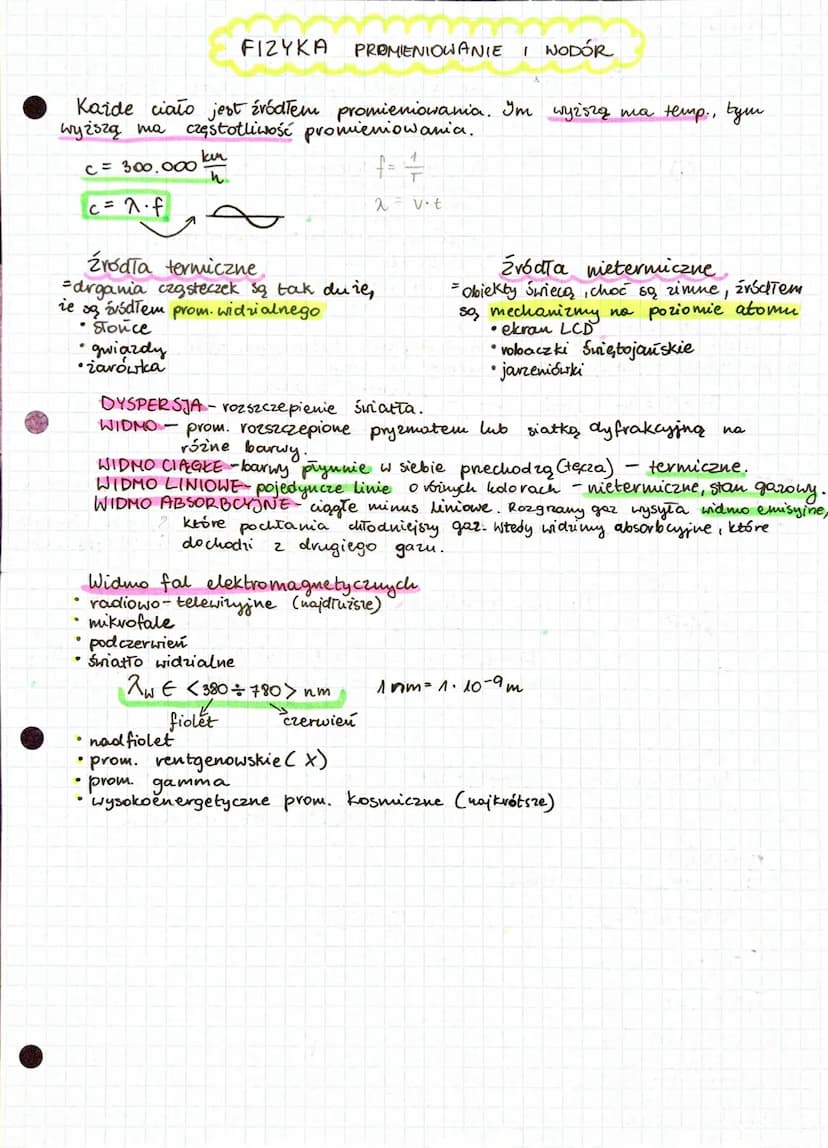 FIZYKA PROMIENIOWANIE I WODÓR
Każde ciało jest źródłem promieniowania. Im wyższą ma temp., tym
wyższą ma częstotliwość promieniowania.
c = 300.000 km/h
f = 1/T
c = λ·f
λ = v·t
Źródła termiczne
= drgania cząsteczek są tak duże,
że są źródłem prom. widzialnego
• słońce
• gwiazdy
• żarówka
Źródła nietermiczne
= obiekty świecą, choć są zimne, źródłem
są mechanizmy na poziomie atomu
• ekran LCD
• robaczki świętojańskie
• jarzeniówki
DYSPERSJA - rozszczepienie światła.
WIDMO - prom. rozszczepione pryzmatem lub siatką dyfrakcyjną na
różne barwy.
WIDMO CIĄGŁE - barwy płynnie w siebie przechodzą (tęcza) - termiczne.
WIDMO LINIOWE - pojedyncze linie o różnych kolorach - nietermiczne, stan gazowy.
WIDMO ABSORBCYJNE - ciągłe minus liniowe. Rozgrzany gaz wysyła widmo emisyjne,
które pochłania chłodniejszy gaz. Wtedy widzimy absorbcyjne, które
dochodzi z drugiego gazu.
Widmo fal elektromagnetycznych
• radiowo-telewizyjne (najdłuższe)
• mikrofale
• podczerwień
• światło widzialne
λw ∈ <380 ÷ 780> nm 1 nm = 1·10⁻⁹ m
fiolet czerwień
• nadfiolet
• prom. rentgenowskie (X)
• prom. gamma
• wysokoenergetyczne prom. kosmiczne (najkrótsze)